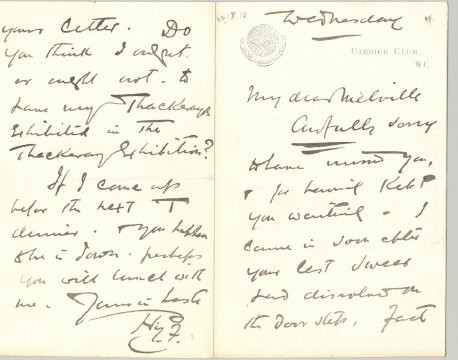 Wednesday
GARRICK CLUB,
W.C.
My dear Melville
Awfully sorry
to have missed you,
& for having kept
you waiting - I
came in soon after
your last
had dissolved on
the door step. Fact
your letter. Do
you think I ought
or ought not - to
have my Thackerays
Exhibited in the
Thackeray Exhibition?
If I come up
before the next T
dinner - & you happen
to be in town - perhaps
you will lunch with
me. Yours in haste